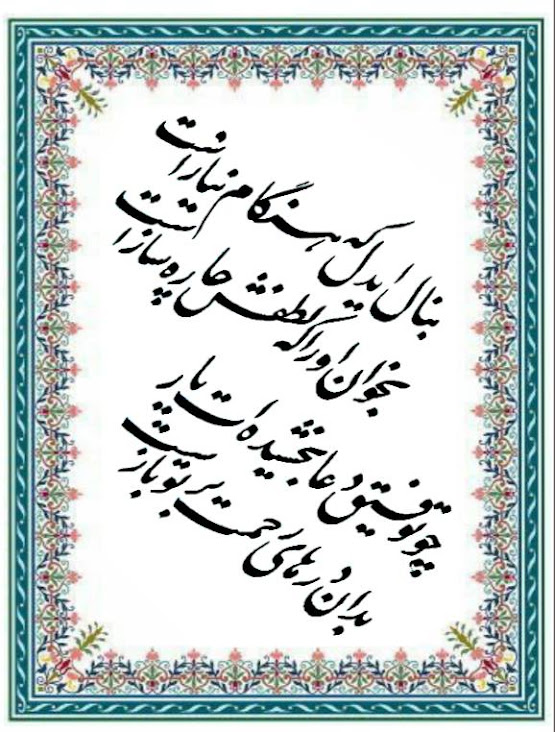 بنال ای دل که هنگام نیاز است
بخوان او را که لطفش چاره ساز است
چو توفیق دعا بخشیده ات یار
بدان درهای رحمت بر تو باز است